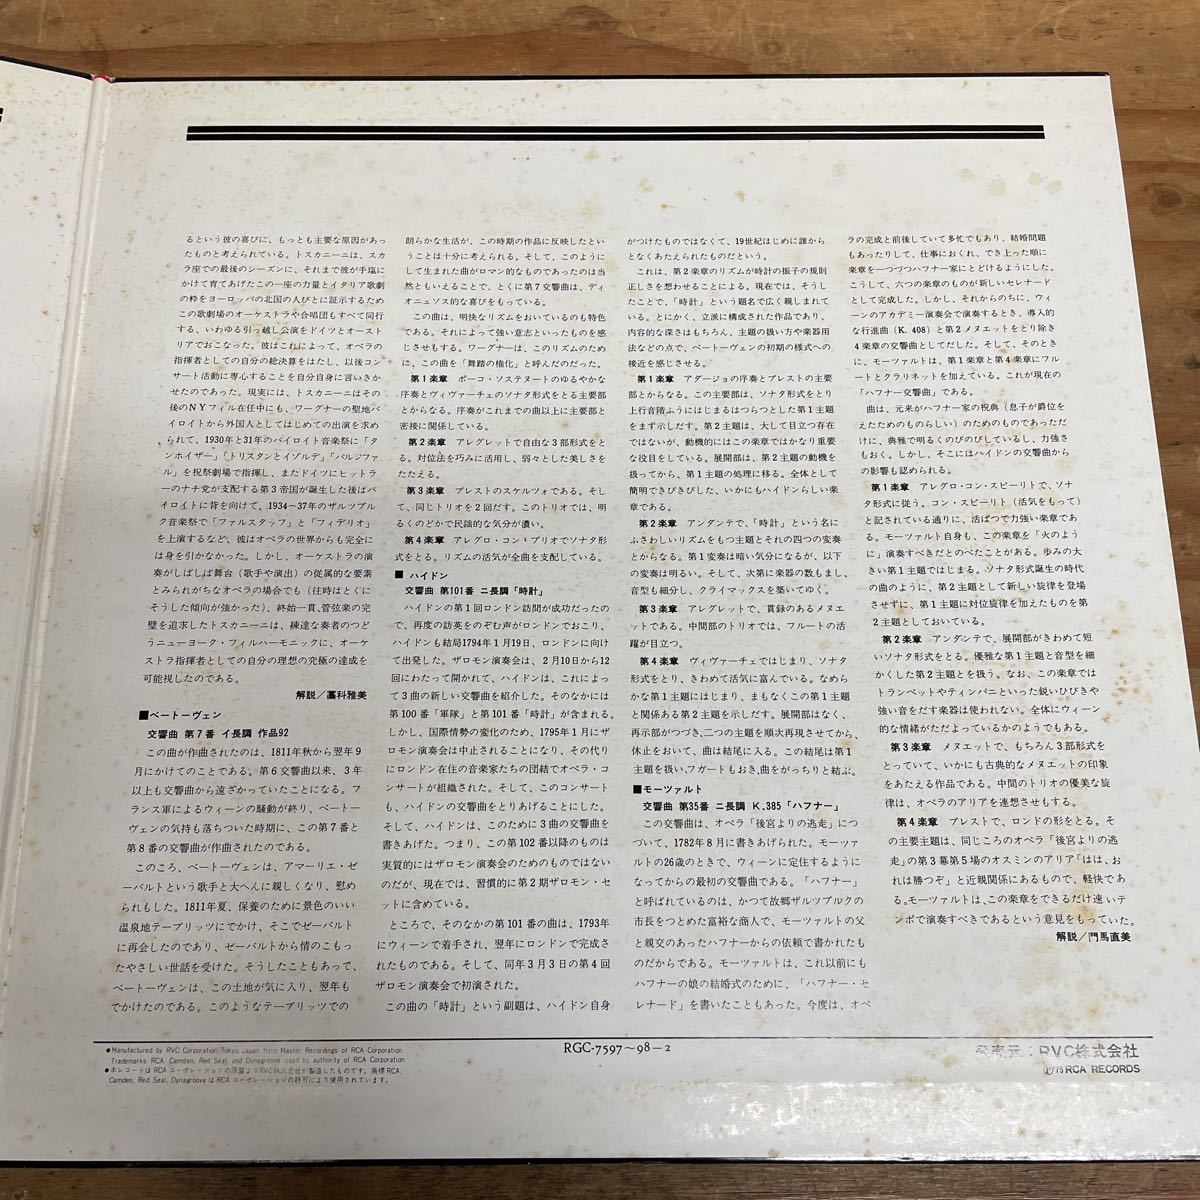 るという彼の喜びに、もっとも主要な原因があっ
たものと考えられている。トスカニーニは、スカ
ラ座での最後のシーズンに、それまで彼が手塩に
かけて育てあげたこの一座の力量とイタリア歌劇
の粋をヨーロッパの北国の人びとに証示するため
この歌劇場のオーケストラや合唱団もすべて同行
する、いわゆる引っ越し公演をドイツとオースト
リアでおこなった。彼はこれによって、オペラの
指揮者としての自分の総決算をはたし、以後コンサ
ート活動に専心することを自分自身に言いきか
せたのであった。現実には、トスカニーニはその
後のNYフィル在任中にも、ワーグナーの聖地バ
イロイトから外国人としてはじめての出演を求め
られて、1930年と31年のバイロイト音楽祭に「タ
ンホイザー」「トリスタンとイゾルデ」「パルジファ
ル」を祝祭劇場で指揮し、またドイツにヒットラ
ーのナチ党が支配する第3帝国が誕生した後はバ
イロイトに背を向けて、1934〜37年のザルツブル
ク音楽祭で「ファルスタッフ」と「フィデリオ」
を上演するなど、彼はオペラの世界からも完全に
は身を引かなかった。しかし、オーケストラの演
奏がしばしば舞台（歌手や演出）の従属的な要素
とみられがちなオペラの場合でも（往時はとくに
そうした傾向が強かった）、終始一貫、管弦楽の完
璧を追求したトスカニーニは、練達な奏者のつど
うニューヨーク・フィルハーモニックに、オーケ
ストラ指揮者としての自分の理想の究極の達成を
可能視したのである。
解説／藁科雅美
■ベートーヴェン
交響曲 第7番 イ長調 作品92
この曲が作曲されたのは、1811年秋から翌年9
月にかけてのことである。第6交響曲以来、3年
以上も交響曲から遠ざかっていたことになる。フ
ランス軍によるウィーンの騒動が終り、ベートー
ヴェンの気持も落ちついた時期に、この第7番と
第8番の交響曲が作曲されたのである。
このころ、ベートーヴェンは、アマーリエ・ゼ
ーバルトという歌手と大へんに親しくなり、慰め
られもした。1811年夏、保養のために景色のいい
温泉地テープリッツにでかけ、そこでゼーバルト
に再会したのであり、ゼーバルトから情のこもっ
たやさしい世話を受けた。そうしたこともあって、
ベートーヴェンは、この土地が気に入り、翌年も
でかけたのである。このようなテープリッツでの
朗らかな生活が、この時期の作品に反映したとい
うことは十分に考えられる。そして、このように
して生まれた曲がロマン的なものであったのは当
然ともいえることで、とくに第7交響曲は、ディ
オニュソス的な喜びをもっている。
この曲は、明快なリズムをおいているのも特色
である。それによって強い意志といったものを感
じさせもする。ワーグナーは、このリズムのため
に、この曲を「舞踏の権化」と呼んだのだった。
第1楽章 ポーコ・ソステヌートのゆるやかな
序奏とヴィヴァーチェのソナタ形式をとる主要部
とからなる。序奏がこれまでの曲以上に主要部と
密接に関係している。
第2楽章 アレグレットで自由な3部形式をと
る。対位法を巧みに活用し、弱々とした美しさを
たたえる。
第3楽章 プレストのスケルツォである。そし
て、同じトリオを2回だす。このトリオでは、明
るくのどかで民謡的な気分が濃い。
第4楽章 アレグロ・コン・ブリオでソナタ形
式をとる。リズムの活気が全曲を支配している。
■ハイドン
交響曲 第101番 ニ長調「時計」
ハイドンの第1回ロンドン訪問が成功だったの
で、再度の訪英をのぞむ声がロンドンでおこり、
ハイドンも結局1794年1月19日、ロンドンに向け
て出発した。ザロモン演奏会は、2月10日から12
回にわたって開かれて、ハイドンは、これによっ
て3曲の新しい交響曲を紹介した。そのなかには
第100番「軍隊」と第101番「時計」が含まれる。
しかし、国際情勢の変化のため、1795年1月にザ
ロモン演奏会は中止されることになり、その代り
にロンドン在住の音楽家たちの団結でオペラ・コ
ンサートが組織された。そして、このコンサート
も、ハイドンの交響曲をとりあげることにした。
そして、ハイドンは、このために3曲の交響曲を
書きあげた。つまり、この第102番以降のものは
実質的にはザロモン演奏会のためのものではない
のだが、現在では、習慣的に第2期ザロモン・セ
ットに含めている。
ところで、そのなかの第101番の曲は、1793年
にウィーンで着手され、翌年にロンドンで完成さ
れたものである。そして、同年3月3日の第4回
ザロモン演奏会で初演された。
この曲の「時計」という副題は、ハイドン自身
がつけたものではなくて、19世紀はじめに誰から
となくあたえられたものだという。
これは、第2楽章のリズムが時計の振子の規則
正しさを想わせることによる。現在では、そうし
たことで、「時計」という題名で広く親しまれて
いる。とにかく、立派に構成された作品であり、
内容的な深さはもちろん、主題の扱い方や楽器用
法などの点で、ベートーヴェンの初期の様式への
接近を感じさせる。
第1楽章 アダージョの序奏とプレストの主要
部とからなる。この主要部は、ソナタ形式をとり
上行音階ふうにはじまるはつらつとした第1主題
をまず示しだす。第2主題は、大して目立つ存在
ではないが、動機的にはこの楽章ではかなり重要
な役目をしている。展開部は、第2主題の動機を
扱ってから、第1主題の処理に移る。全体として
簡明できびきびした、いかにもハイドンらしい楽
章である。
第2楽章 アンダンテで、「時計」という名に
ふさわしいリズムをもつ主題とその四つの変奏
とからなる。第1変奏は暗い気分になるが、以下
の変奏は明るい。そして、次第に楽器の数もまし、
音型も細分し、クライマックスを築いてゆく。
第3楽章 アレグレットで、貫録のあるメヌエ
ットである。中間部のトリオでは、フルートの活
躍が目立つ。
第4楽章 ヴィヴァーチェではじまり、ソナタ
形式をとり、きわめて活気に富んでいる。なめら
かな第1主題にはじまり、まもなくこの第1主題
と関係ある第2主題を示しだす。展開部はなく、
再示部がつづき、二つの主題を順次再現させてから、
休止をおいて、曲は結尾に入る。この結尾は第1
主題を扱い、フガートもおき、曲をがっちりと結ぶ。
■モーツァルト
交響曲 第35番 ニ長調 K.385「ハフナー」
この交響曲は、オペラ「後宮よりの逃走」につ
づいて、1782年8月に書きあげられた。モーツァ
ルトの26歳のときで、ウィーンに定住するように
なってからの最初の交響曲である。「ハフナー」
と呼ばれているのは、かつて故郷ザルツブルクの
市長をつとめた富裕な商人で、モーツァルトの父
と親交のあったハフナーからの依頼で書かれたも
のだからである。モーツァルトは、これ以前にも
ハフナーの娘の結婚式のために、「ハフナー・セ
レナード」を書いたこともあった。今度は、オペ
ラの完成と前後していて多忙でもあり、結婚問題
もあったりして、仕事におくれ、でき上った順に
楽章を一つづつハフナーにとどけるようにした。
こうして、六つの楽章のものが新しいセレナード
として完成した。しかし、それからのちに、ウィ
ーンのアカデミー演奏会で演奏するとき、導入的
な行進曲（K. 408）と第2メヌエットをとり除き
4楽章の交響曲としてだした。そして、そのとき
に、モーツァルトは、第1楽章と第4楽章にフル
ートとクラリネットを加えている。これが現在の
「ハフナー交響曲」である。
曲は、元来がハフナー家の祝典（息子が爵位を
えたためのものらしい）のためのものであっただ
けに、典雅で明るくのびのびしているし、力強さ
もおく。しかし、そこにはハイドンの交響曲から
の影響も認められる。
第1楽章 アレグロ・コン・スピーリトで、ソナ
タ形式に従う。コン・スピーリト（活気をもって）
と記されている通りに、活ぱつで力強い楽章であ
る。モーツァルト自身も、この楽章を「火のよう
に」演奏すべきだとのべたことがある。歩みの大
きい第1主題ではじまる。ソナタ形式誕生の時代
の曲のように、第2主題として新しい旋律を登場
させずに、第1主題に対位旋律を加えたものを第
2主題としておいている。
第2楽章 アンダンテで、展開部がきわめて短
いソナタ形式をとる。優雅な第1主題と音型を細
かくした第2主題とを扱う。なお、この楽章では
トランペットやティンパニといった鋭いひびきや
強い音をだす楽器は使われない。全体にウィーン
的な情緒がただよっているかのようでもある。
第3楽章 メヌエットで、もちろん3部形式を
とっていて、いかにも古典的なメヌエットの印象
をあたえる作品である。中間のトリオの優美な旋
律は、オペラのアリアを連想させもする。
第4楽章 プレストで、ロンドの形をとる。そ
の主要主題は、同じころのオペラ「後宮よりの逃
走」の第3幕第5場のオスミンのアリア「はは、お
れは勝つぞ」と近親関係にあるもので、軽快であ
る。モーツァルトは、この楽章をできるだけ速いテ
ンポで演奏すべきであるという意見をもっていた。
解説／門馬直美
●Manufactured by RVC Corporation, Tokyo, Japan from Master Recordings of RCA Corporation
Trademarks RCA, Camden, Red Seal, and Dynagroove used by authority of RCA Corporation
●本レコードはRCAコーポレーションの原盤よりRVC株式会社が製造したものです。商標RCA,
Camden, Red Seal, DynagrooveはRCAコーポレーションの許可により使用されています。
RGC-7597〜98-2
発売元：RVC株式会社
Ⓟ'75 RCA RECORDS